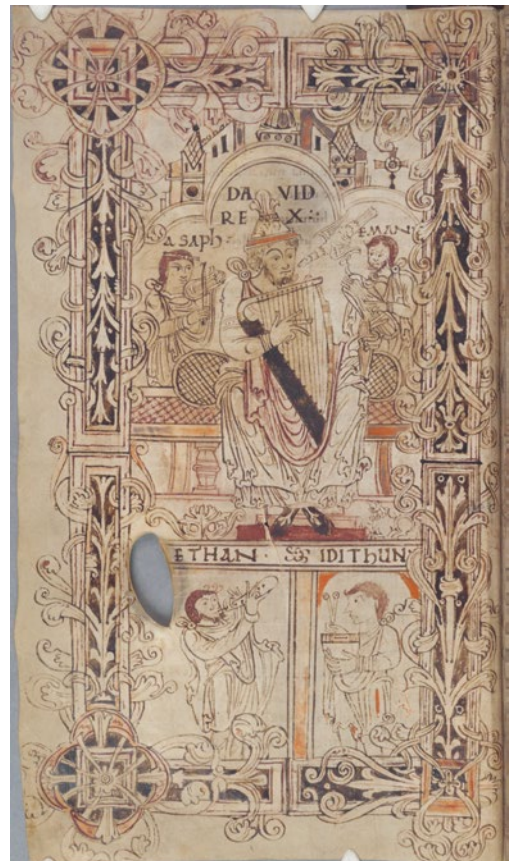 DA VID
RE X
ASAPh EMAN
EThAN · & IDIThUN